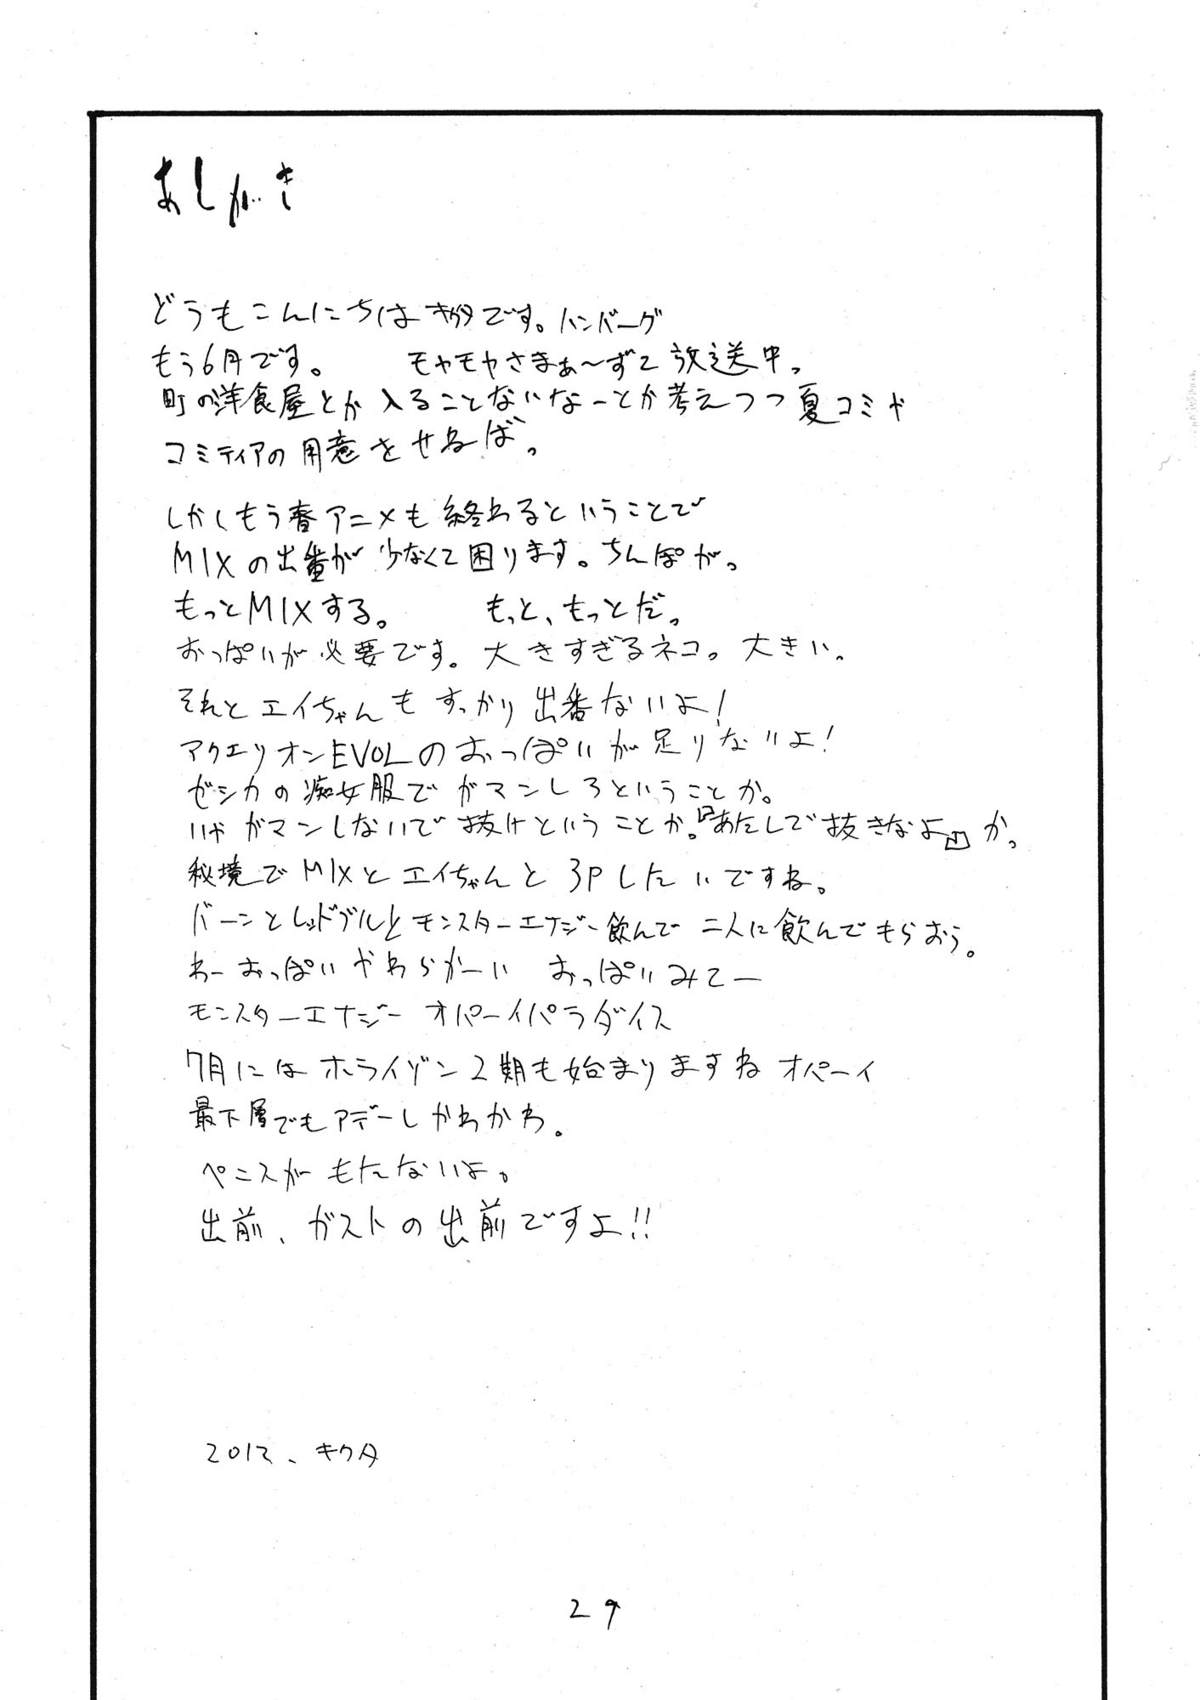 あしがき
どうもこんにちは キクタです。ハンバーグ
もう6月です。 モヤモヤさまぁ～ず2 放送中。
町の洋食屋とか入ることないなーとか考えつつ夏コミや
コミティアの用意をせねば。
しかしもう春アニメも終わるということで
MIXの出番が少なくて困ります。ちんぽが。
もっとMIXする。 もっと、もっとだ。
おっぱいが必要です。大きすぎるネコ。大きい。
それとエイちゃんもすっかり出番ないよ！
アクエリオンEVOLのおっぱいが足りないよ！
ゼシカの痴女服でガマンしろということか。
いやガマンしないで抜けということか。『あたしで抜きなよ』か。
秘境でMIXとエイちゃんと3Pしたいですね。
バーンとレッドブルとモンスターエナジー飲んで二人に飲んでもらおう。
わーおっぱいやわらかーい おっぱいみてー
モンスターエナジー オパーイパラダイス
7月にはホライゾン2期も始まりますね オパーイ
最下層でもアデーレかわかわ。
ペニスがもたないよ。
出前、ガストの出前ですよ!!
2012、キクタ
29